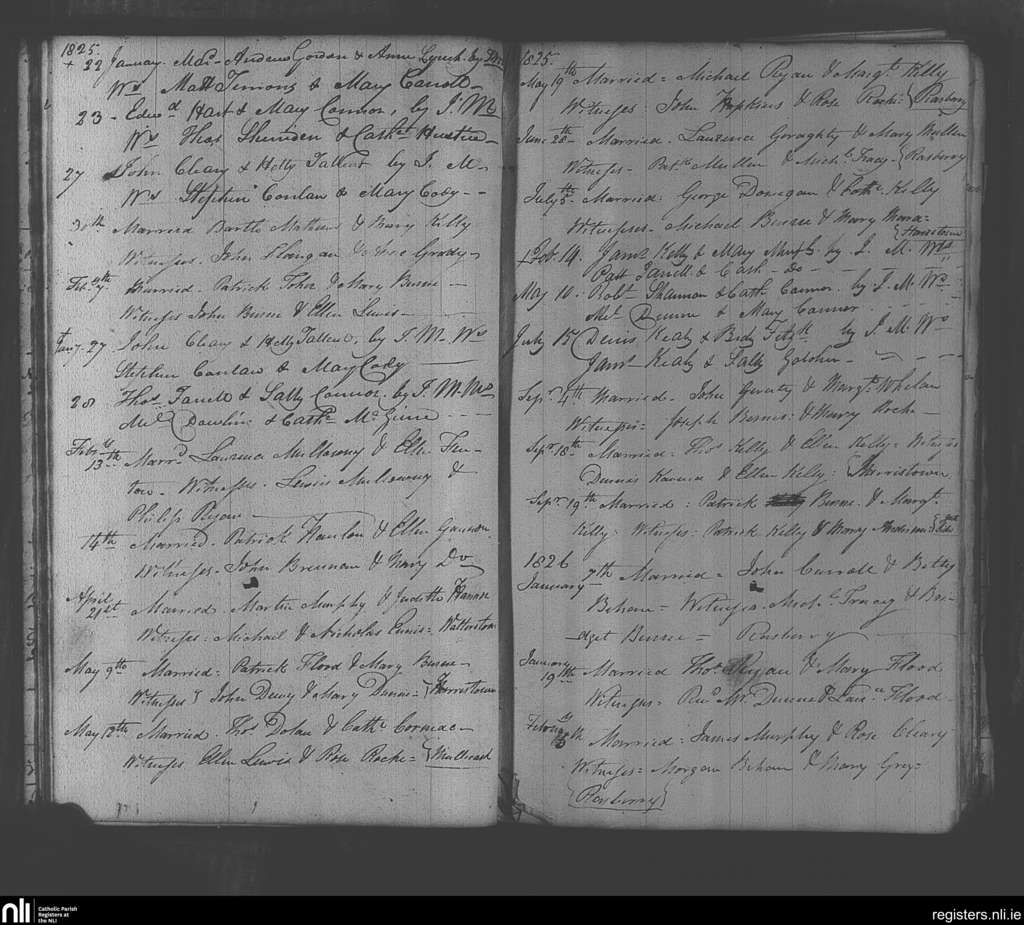 1825.
+ 22 January. Mar. Andrew Gordon & Anne Lynch. by
Ws Matt Timons & Mary Carroll
23 - Edwd Hart & Mary Connor, by J. M
Ws Thos & Cathe
27 John Cleary & Hetty Tallent by J. M -
Ws Stephen Conlan & Mary Cody - -
30th Married Bartle Mathews & Mary Kelly
Witnesses. John & Grady -
Feb. Married. Patrick Toher & Mary Burne -
Witnesses John Burne & Ellen Lewis -
Jany. 27 John Cleary & Hetty Tallent, by J. M - Ws
Stephen Conlan & Mary Cody
28 Thos Farrell & Sally Connor, by J. M. Ws
Mic Dowling & Cathe Mc - - -
Feby 13th Marrd Laurence Mullowny & Ellen Fen-
ton - Witnesses. Lewis Mullowny &
Philip Ryan -
14th Married. Patrick Hanlon & Ellen
Witnesses - John Brennan & Mary Do
April 21st Married. Martin Murphy & Judith
Witnesses: Michael & Nicholas Ennis = Watterstown
May 9th Married: Patrick Flood & Mary Burne -
Witnesses John Dewy & Mary Dunne = {Harristown
May 12th Married. Thos Dolan & Cathe Cormac -
Witnesses Ellen Lewis & Rose Roche = {Mullicash
1825.
May 19th Married = Michael Ryan & Margt Kelly
Witnesses John Hopkins & Rose Roche {Rasberry
June 28th Married. Laurence Geraghty & Mary Mullen
Witnesses - Patk Mullen & Michl Tracy - {Rasberry
July 5th - Married. George Donegan & Cathe Kelly
Witnesses - Michael Burne & Mary =
{Harristown
Feb. 14. James Kelly & Mary Murphy. by J. M. Ws
Patt Farrell & Cath - Do - -
May 10. Robt Shannon & Cath Connor. by J. M. Ws -
Mic Dunne & Mary Connor.
July 15 Denis Kealy & Brdy by J. M. Ws
Jams Kealy & Sally - = - -
Sepr. 4th Married. John Geraty & Margt Whelan
Witnesses = Joseph Bernes: & Mary Roche -
Sepr 18th Married: Thos Kelly & Ellen Kelly = Witness
Dennis & Ellen Kelly: {Harristown
Sepr. 19th Married: Patrick Burne. & Margt
Kelly: Witnesses: Patrick Kelly & Mary Anderson
1826
January 7th Married = John Carroll & Betty
Behane = Witnesses. Michl Tracy & Bri-
dget Burne = Rasberry
January 19th Married Thos Ryan & Mary Flood
Witnesses = Revd Mr. Dunne & Laure Flood -
Februy Married: James Murphy & Rose Cleary -
Witnesses = Morgan Behane & Mary Grey =
{Rasberry}
nli Catholic Parish
Registers at
the NLI
registers.nli.ie